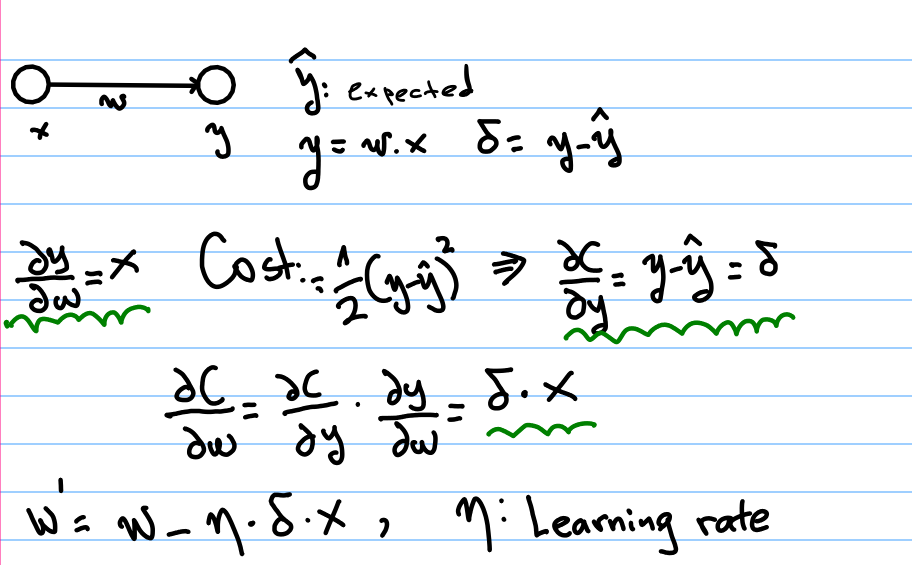 ŷ: expected
w
x y y = w.x δ = y-ŷ
∂y/∂w = x Cost:= 1/2(y-ŷ)² ⇒ ∂C/∂y = y-ŷ = δ
∂C/∂w = ∂C/∂y · ∂y/∂w = δ · x
w' = w - η·δ·x , η: Learning rate